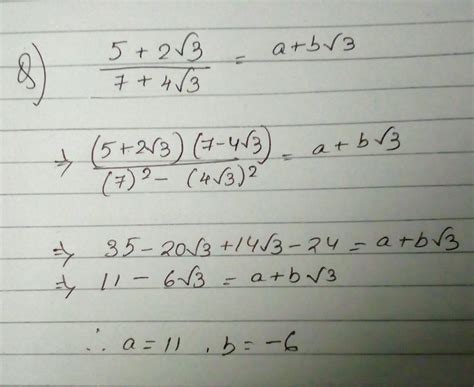 Q) (5 + 2√3)/(7 + 4√3) = a+b√3
⇒ (5+2√3) (7-4√3)/((7)² - (4√3)²) = a + b√3
⇒ 35 - 20√3 + 14√3 - 24 = a+b√3
⇒ 11 - 6√3 = a+b√3
∴ a = 11 , b = -6